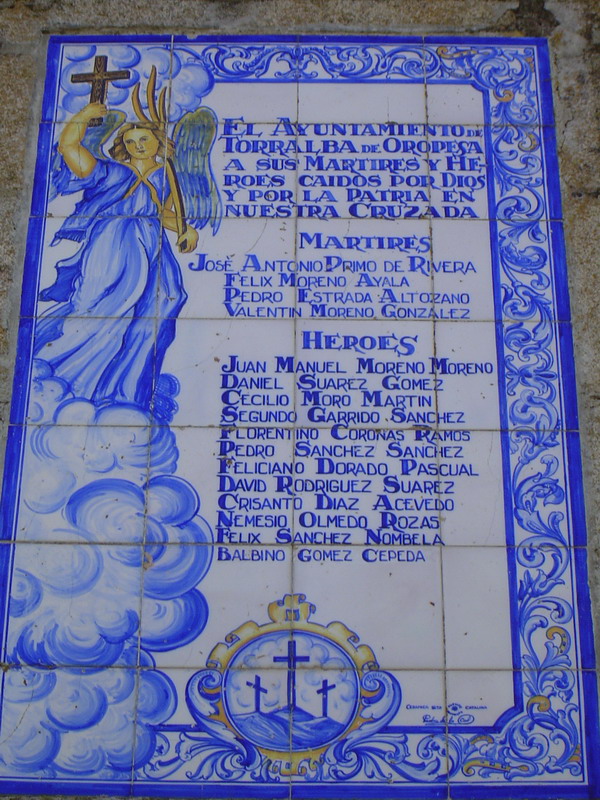 EL AYUNTAMIENTO DE
TORRALBA DE OROPESA
A SUS MARTIRES Y HE-
ROES CAIDOS POR DIOS
Y POR LA PATRIA EN
NUESTRA CRUZADA
MARTIRES
JOSÉ ANTONIO PRIMO DE RIVERA
FELIX MORENO AYALA
PEDRO ESTRADA ALTOZANO
VALENTIN MORENO GONZALEZ
HEROES
JUAN MANUEL MORENO MORENO
DANIEL SUAREZ GOMEZ
CECILIO MORO MARTIN
SEGUNDO GARRIDO SANCHEZ
FLORENTINO CORONAS RAMOS
PEDRO SANCHEZ SANCHEZ
FELICIANO DORADO PASCUAL
DAVID RODRIGUEZ SUAREZ
CRISANTO DIAZ ACEVEDO
NEMESIO OLMEDO ROZAS
FELIX SANCHEZ NOMBELA
BALBINO GOMEZ CEPEDA
CATALINA